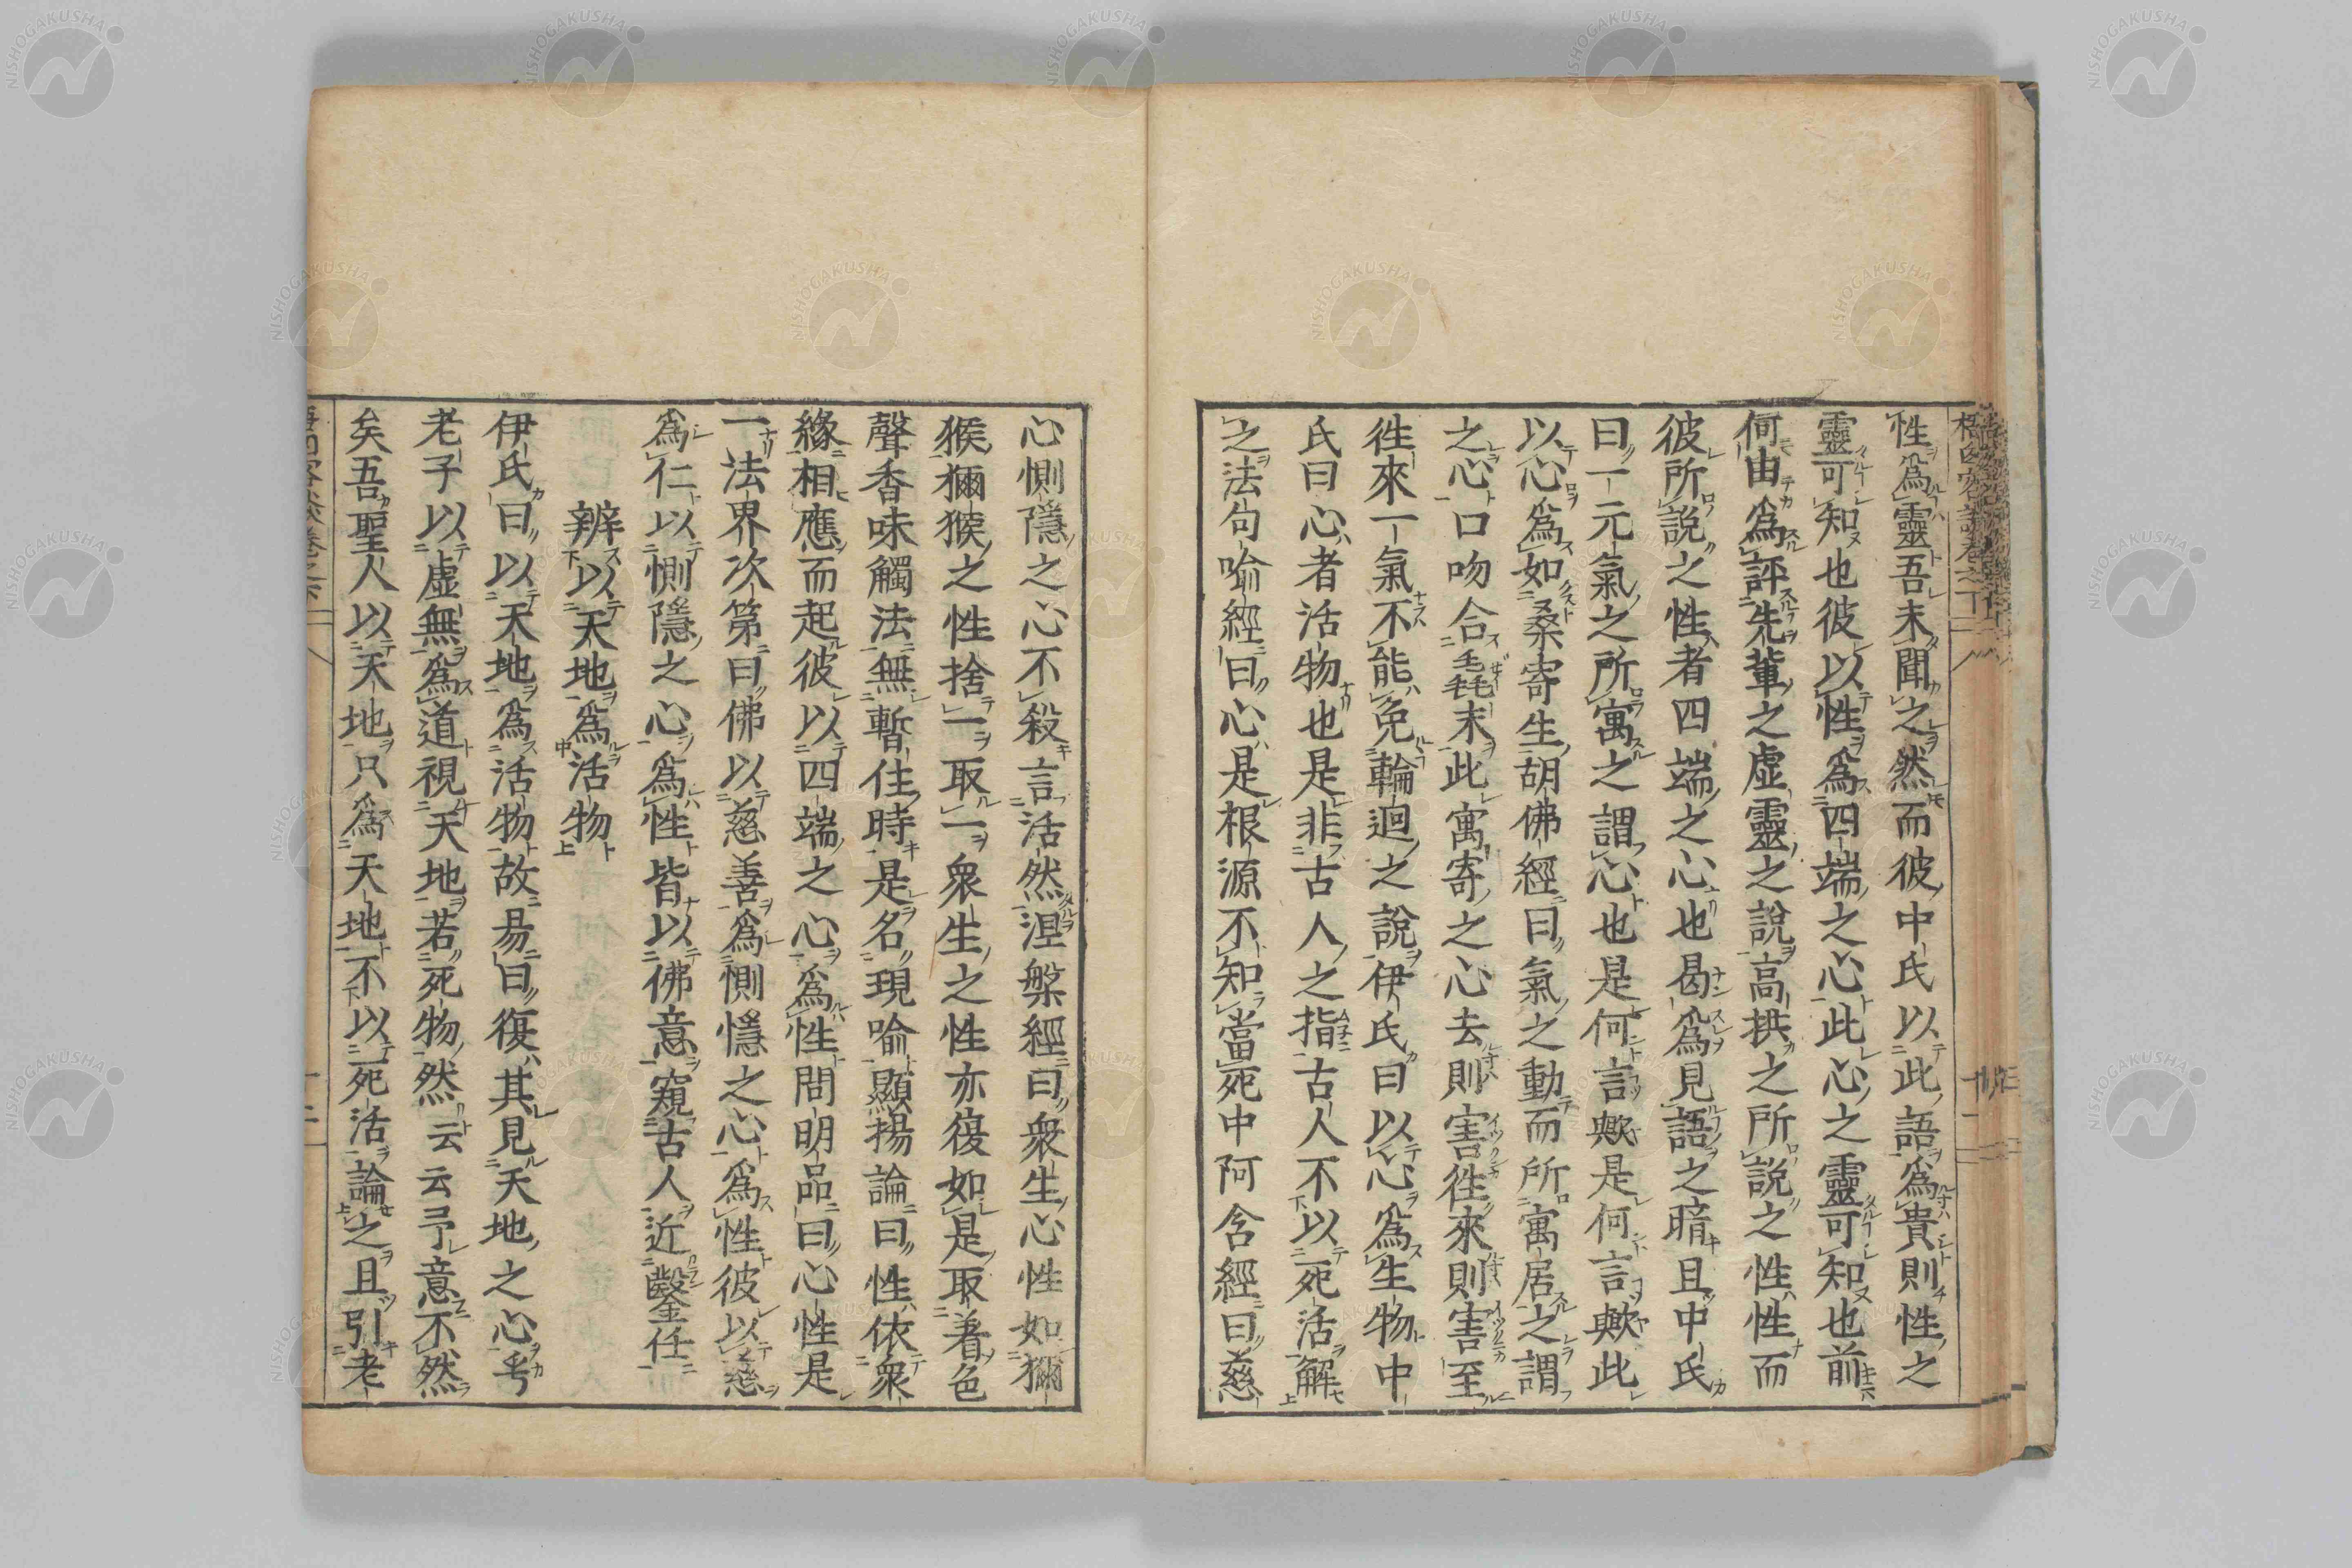 性爲靈吾未聞之然而彼中氏以此語爲貴則性之
靈可知也彼以性爲四端之心此心之靈可知也前
何由爲評先輩之虛靈之說高拱之所說之性性而
彼所說之性者四端之心也曷爲見語之暗且中氏
曰一元氣之所寓之謂心也是何言歟是何言歟此
以心爲如桑寄生胡佛經曰氣之動而所寓居之謂
之心口吻合毫末此寓寄之心去則害徃來則害至
徃來一氣不能免輪迴之說伊氏曰以心爲生物中
氏曰心者活物也是非古人之指古人不以死活解
之法句喻經曰心是根源不知當死中阿含經曰慈
心惻隱之心不殺言活然涅槃經曰衆生心性如獼
猴獼猴之性捨一取一衆生之性亦復如是取着色
聲香味觸法無暫住時是名現喻顯揚論曰性依衆
緣相應而起彼以四端之心爲性問明品曰心性是
一法界次第曰佛以慈善爲惻隱之心爲性彼以慈
爲仁以惻隱之心爲性皆以佛意窺古人近鑿任
辨以天地爲活物
伊氏曰以天地爲活物故易曰復其見天地之心乎
老子以虛無爲道視天地若死物然云云予意不然
矣吾聖人以天地只爲天地不以死活論之且引老
NISHOGAKUSHA